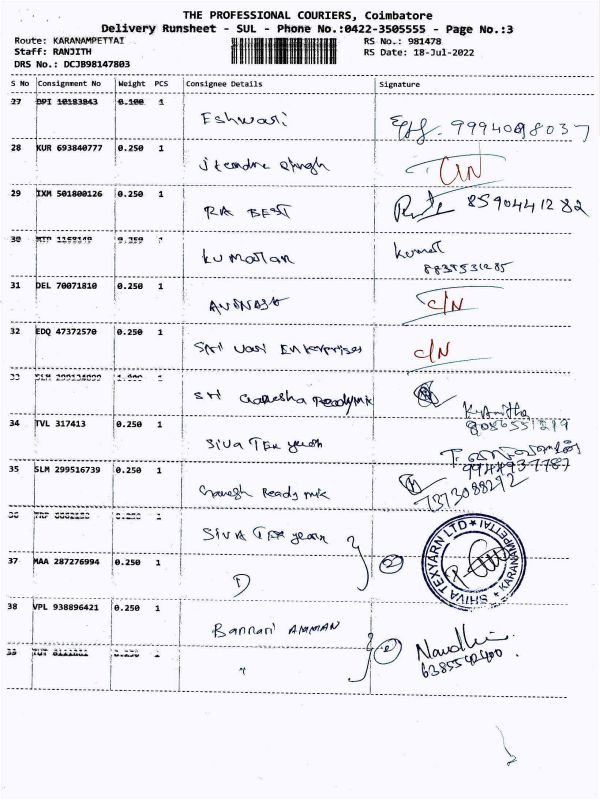 THE PROFESSIONAL COURIERS, Coimbatore
Delivery Runsheet - SUL - Phone No.:0422-3505555 - Page No.:3
Route: KARANAMPETTAI RS No.: 981478
Staff: RANJITH RS Date: 18-Jul-2022
DRS No.: DCJB98147803
S No Consignment No Weight PCS Consignee Details Signature
27 DPI 10183843 0.100 1 Eshwari 9994098037
28 KUR 693840777 0.250 1 Jitendra Singh C/N
29 IXM 501800126 0.250 1 RA BEST 8590441282
30 Kumaran Kumar
31 DEL 70071810 0.250 1 AVINASH C/N
32 EDQ 47372570 0.250 1 Sri Vari Enterprises C/N
33 Sri Ganesha Readymix
34 TVL 317413 0.250 1 Siva Tex yarn 9944937787
35 SLM 299516739 0.250 1 Ganesh Ready mix 7373088292
36 SIVA Tex yarn
37 MAA 287276994 0.250 1 D 2
SHIVA TEXYARN LTD * KARANAMPETTAI *
38 VPL 938896421 0.250 1 Bannari AMMAN 2 Nandhini
39 " 6385542400